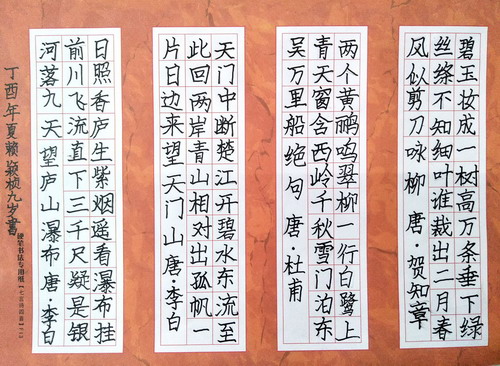 碧玉妆成一树高万条垂下绿
丝绦不知细叶谁裁出二月春
风似剪刀 咏柳 唐·贺知章
两个黄鹂鸣翠柳一行白鹭上
青天窗含西岭千秋雪门泊东
吴万里船 绝句 唐·杜甫
天门中断楚江开碧水东流至
此回两岸青山相对出孤帆一
片日边来望天门山 唐·李白
日照香庐生紫烟遥看瀑布挂
前川飞流直下三千尺疑是银
河落九天望庐山瀑布唐·李白
丁酉年夏赖颖桢九岁書
硬笔书法专用纸【七言诗四首】